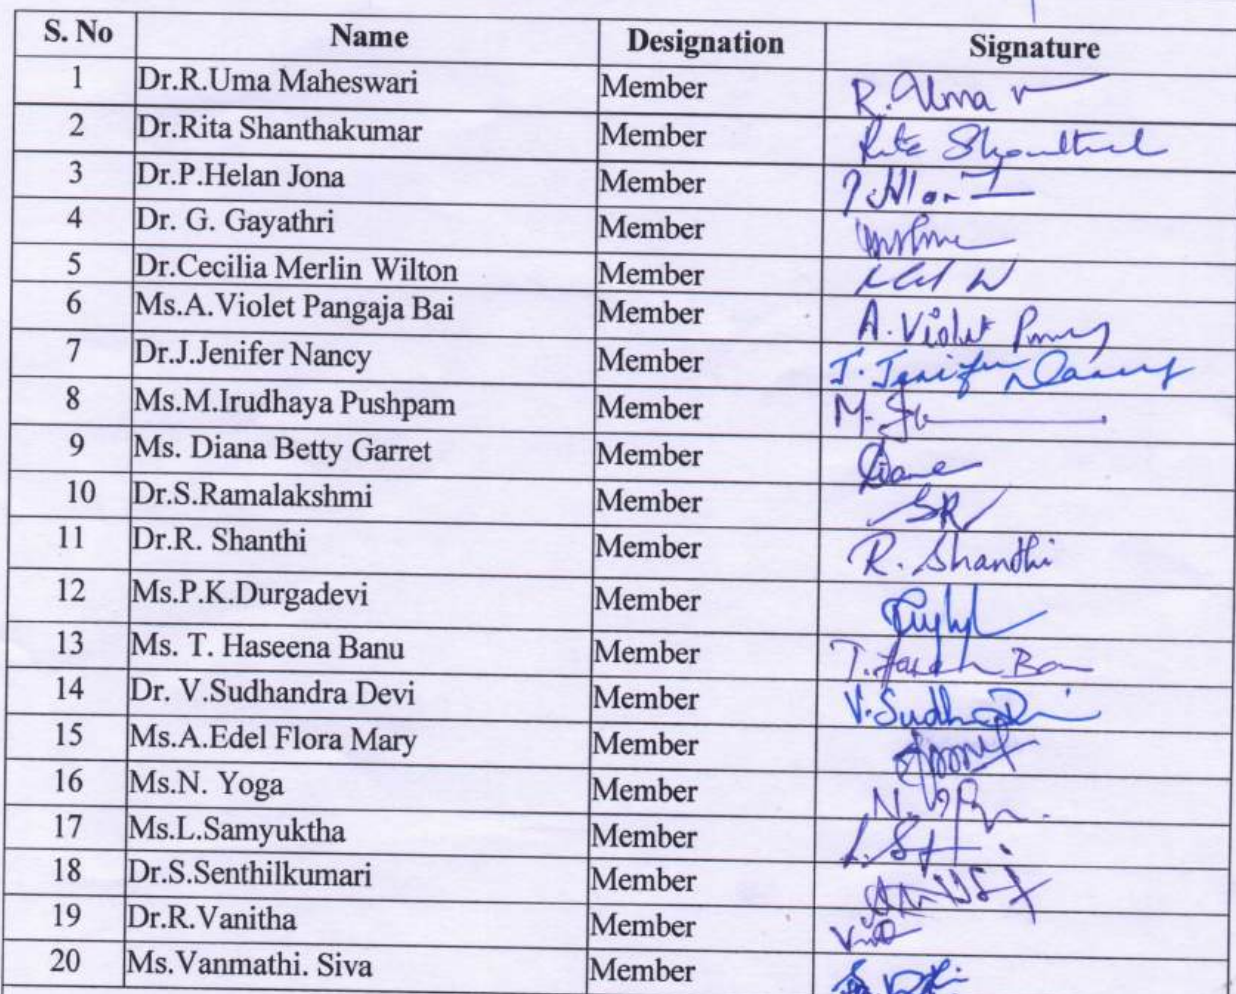 S. No Name Designation Signature
1 Dr.R.Uma Maheswari Member R. Uma
2 Dr.Rita Shanthakumar Member Rita
3 Dr.P.Helan Jona Member
4 Dr. G. Gayathri Member
5 Dr.Cecilia Merlin Wilton Member
6 Ms.A.Violet Pangaja Bai Member A. Violet
7 Dr.J.Jenifer Nancy Member J. Jenifer Nancy
8 Ms.M.Irudhaya Pushpam Member M.
9 Ms. Diana Betty Garret Member
10 Dr.S.Ramalakshmi Member SR
11 Dr.R. Shanthi Member R. Shanthi
12 Ms.P.K.Durgadevi Member
13 Ms. T. Haseena Banu Member T.
14 Dr. V.Sudhandra Devi Member
15 Ms.A.Edel Flora Mary Member
16 Ms.N. Yoga Member N.
17 Ms.L.Samyuktha Member L.
18 Dr.S.Senthilkumari Member
19 Dr.R.Vanitha Member
20 Ms.Vanmathi. Siva Member